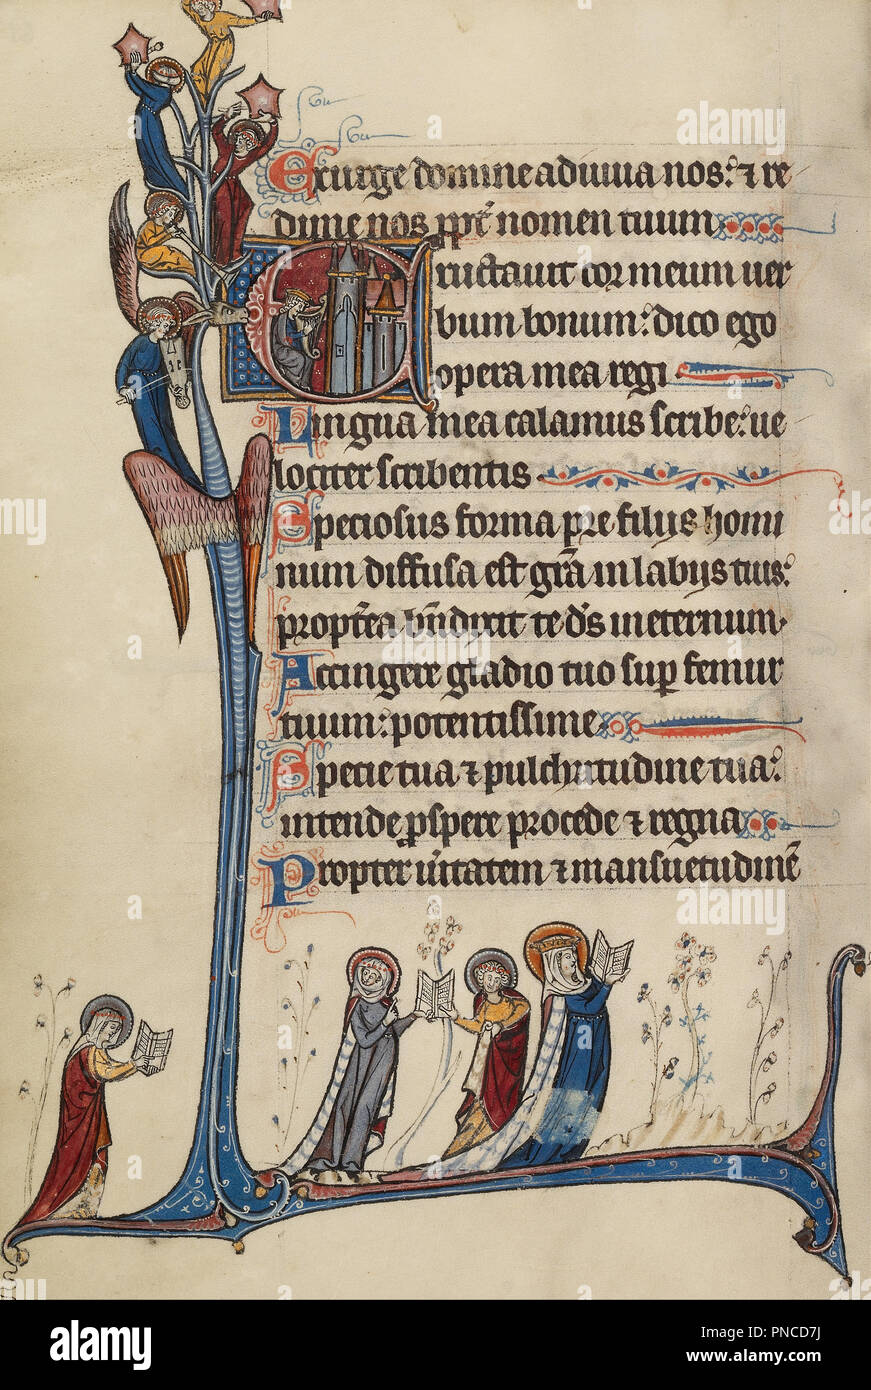 Exurge domine adiuua nos: ⁊ re
dime nos ppt̄ nomen tuum
Eructauit cor meum uer
bum bonum: dico ego
opera mea regi
Lingua mea calamus scribe: ue
lociter scribentis
Speciosus forma pre filijs homi
num diffusa est gr̄a in labijs tuis:
propt̄ea bn̄dixit te ds̄ in eternum.
Accingere gladio tuo sup femur
tuum: potentissime
Specie tua ⁊ pulchritudine tua:
intende pspere procede ⁊ regna
Propter ūitatem ⁊ mansuetudinē
alamy
Image ID: PNCD7J
www.alamy.com